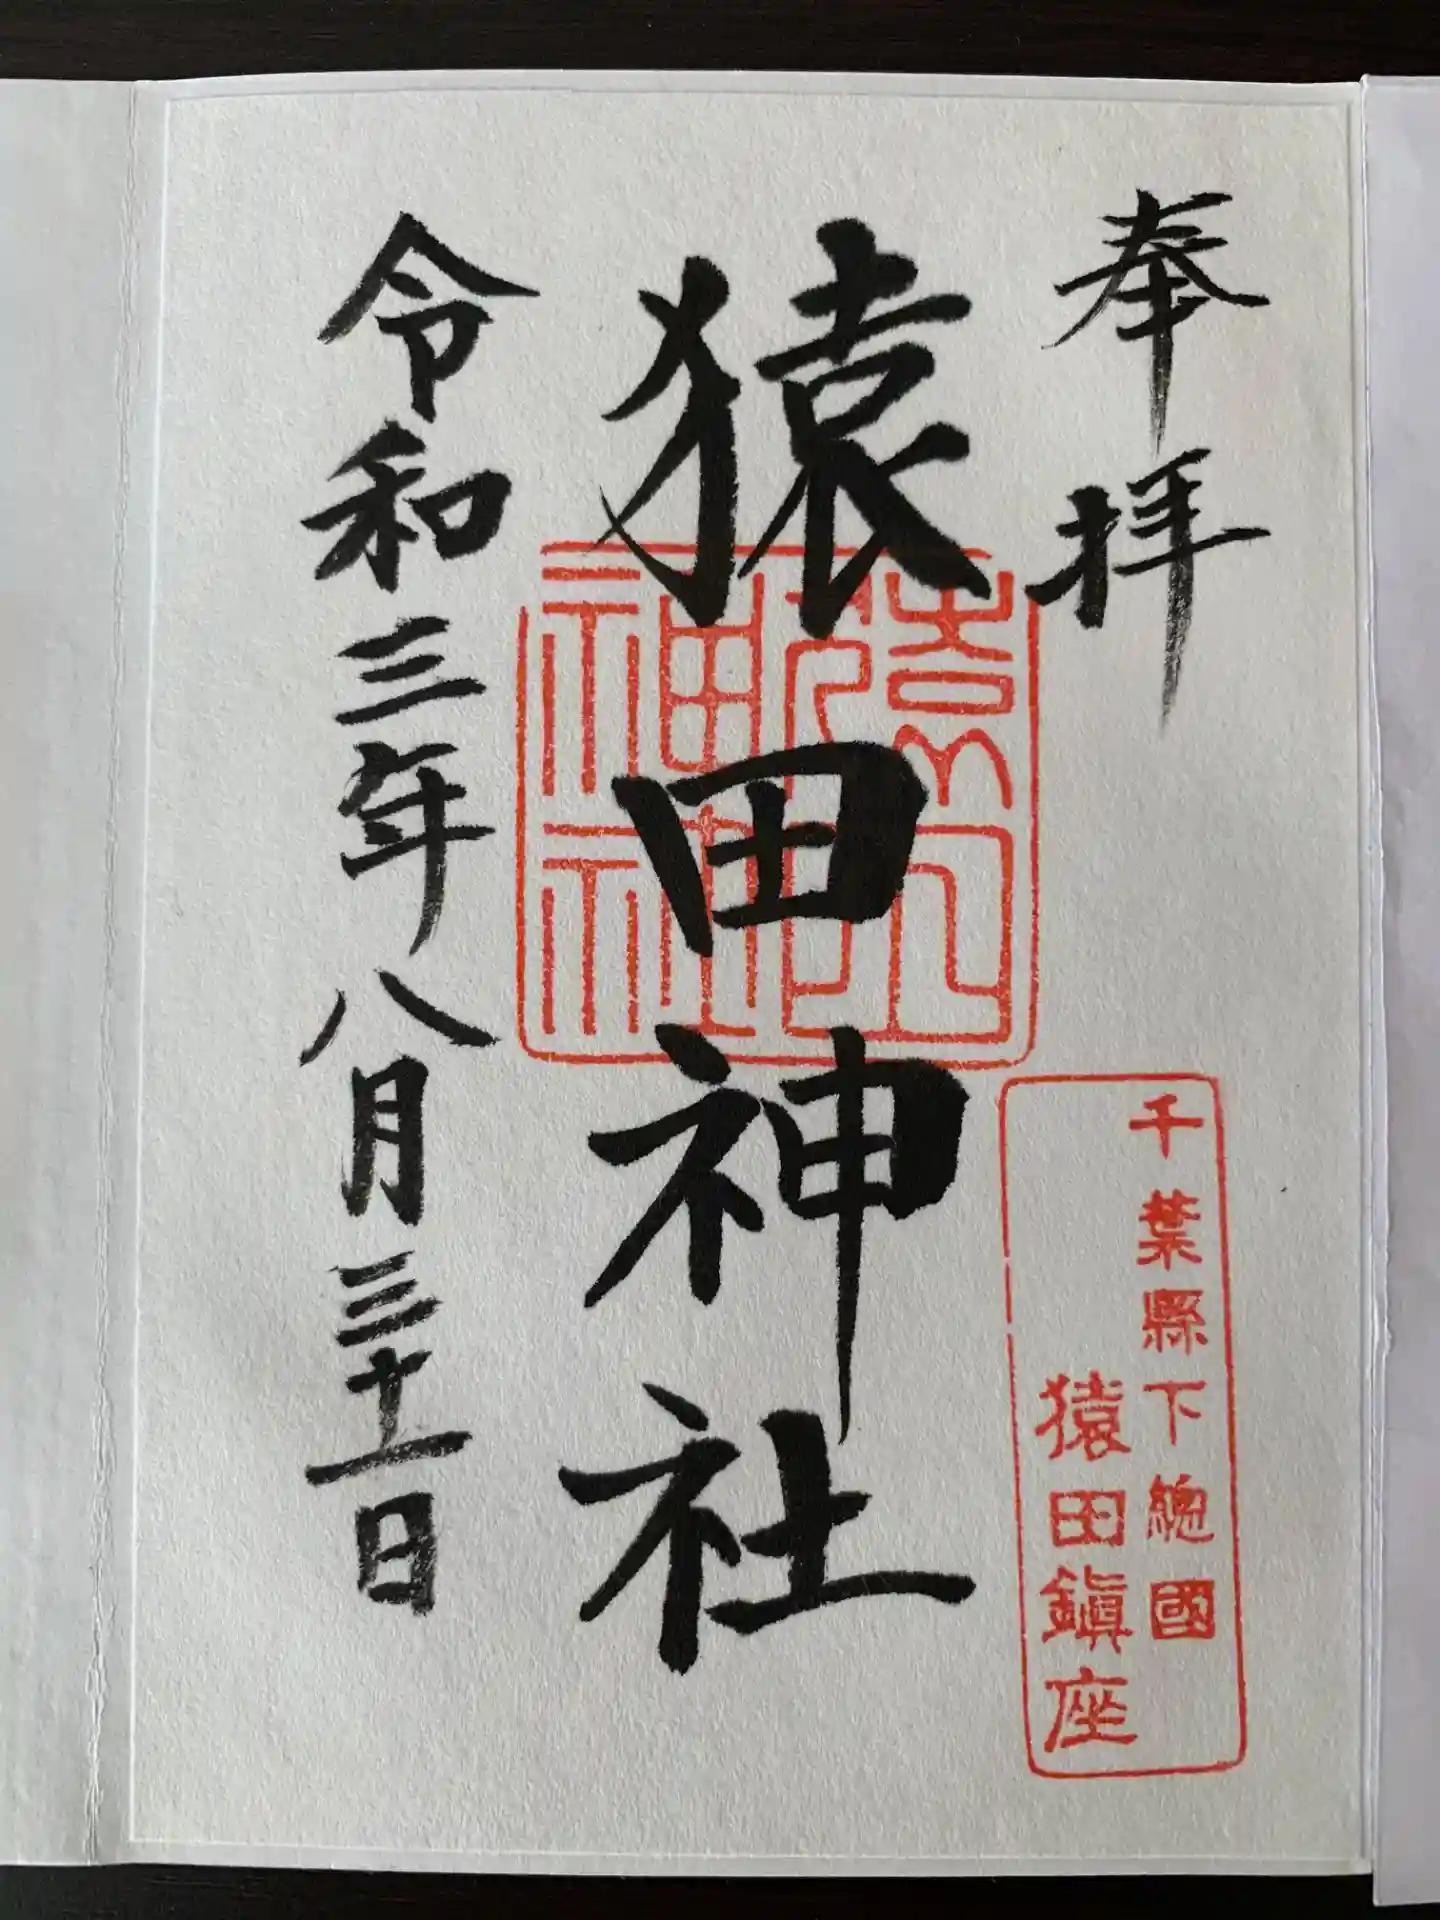 奉拝
千葉縣下總國
猿田鎮座
猿田神社
猿田神社
令和三年八月三十一日